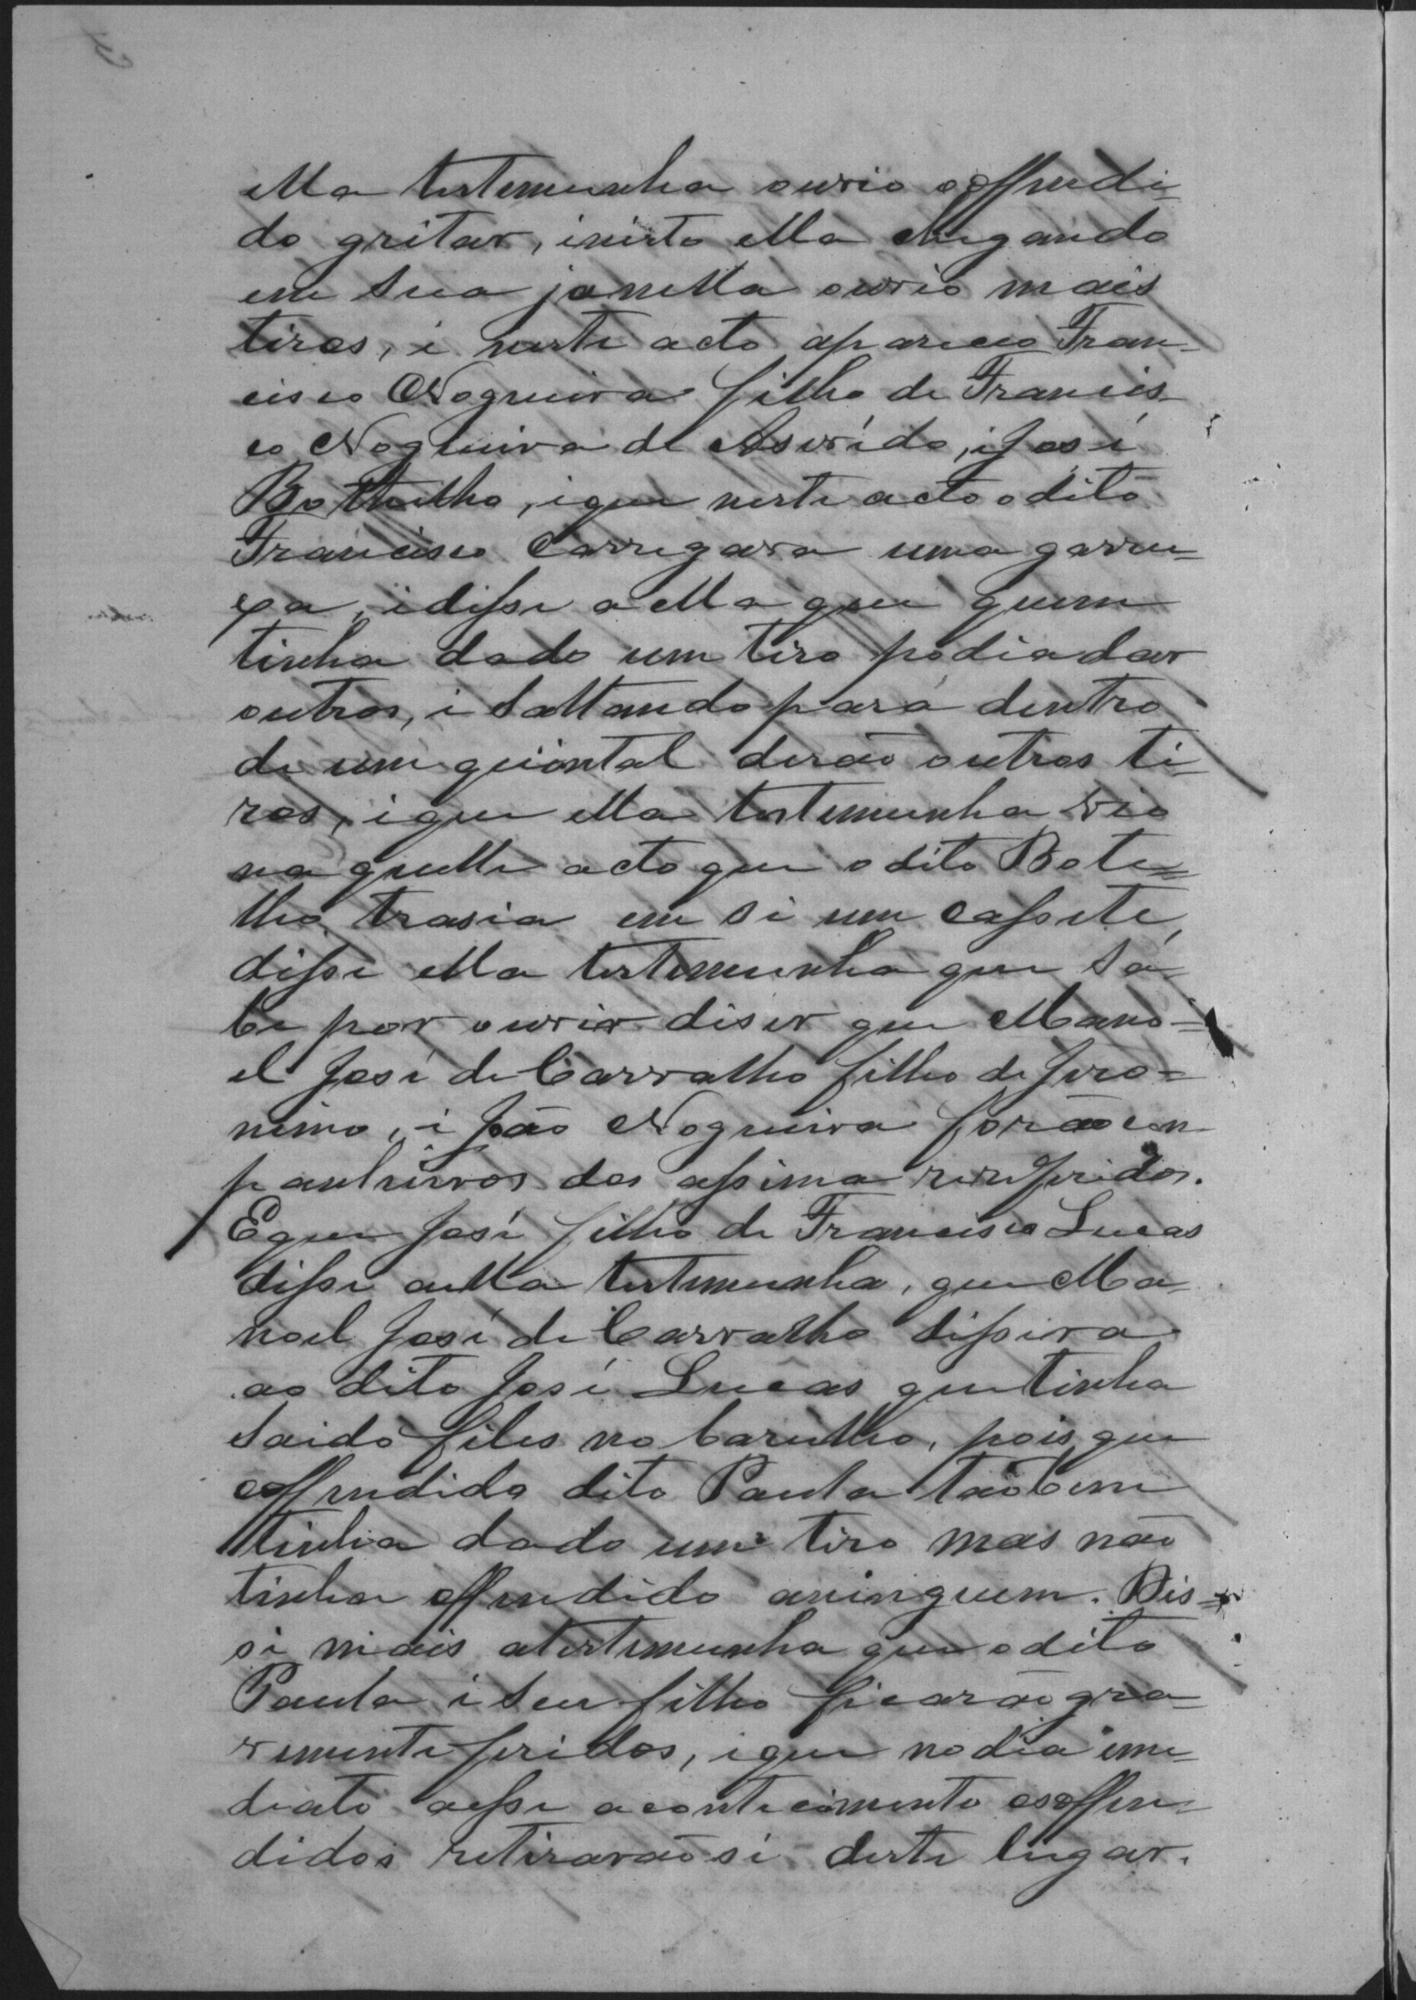 ella testemunha ouvio o offendi-
do gritar, i nisto ella chegando
em sua janella ouvio mais
tiros, i neste acto apareceo Fran-
cisco Nogueira filho de Francis-
co Nogueira de Asevêdo, i José
Bothelho, i que neste acto o dito
Francisco Carregava uma garru-
xa, i disse a ella que quem
tinha dado um tiro podia dar
outros, i saltando para dentro
de um quiontal derão outros ti-
ros, i que ella testemunha vio
na quelle acto que o dito Bote=
lho trasia em si um cassete,
disse ella testemunha que sa-
be por ouvir diser que Mano=
el José de Carvalho filho de Jero=
nimo, i João Nogueira forão com
panheiros dos assima rereferidos.
E que José filho de Francisco Lucas
disse a ella testemunha, que Ma-
noel José de Carvalho dissera
ao dito José Lucas que tinha
saido feles no barulho, pois que
offendido dito Paula tãobem
tinha dado um tiro mas não
tinha offendido a ninguem. Dis=
si mais a testemunha que o dito
Paula i seu filho ficarão gra-
vemente feridos, i que no dia ime-
diato a esse acontecimento os offen-
didos retirarão sí deste lugar.